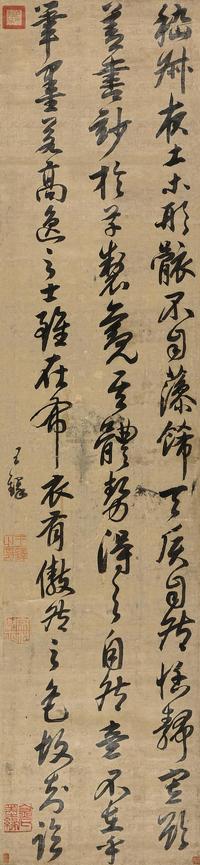 嵇叔夜土木形骸不自藻飾天質自然恬靜寡欲
善書妙於草製觀其體勢得之自然意不在乎
筆墨若高逸之士雖在布衣有傲然之色故知臨
王鐸